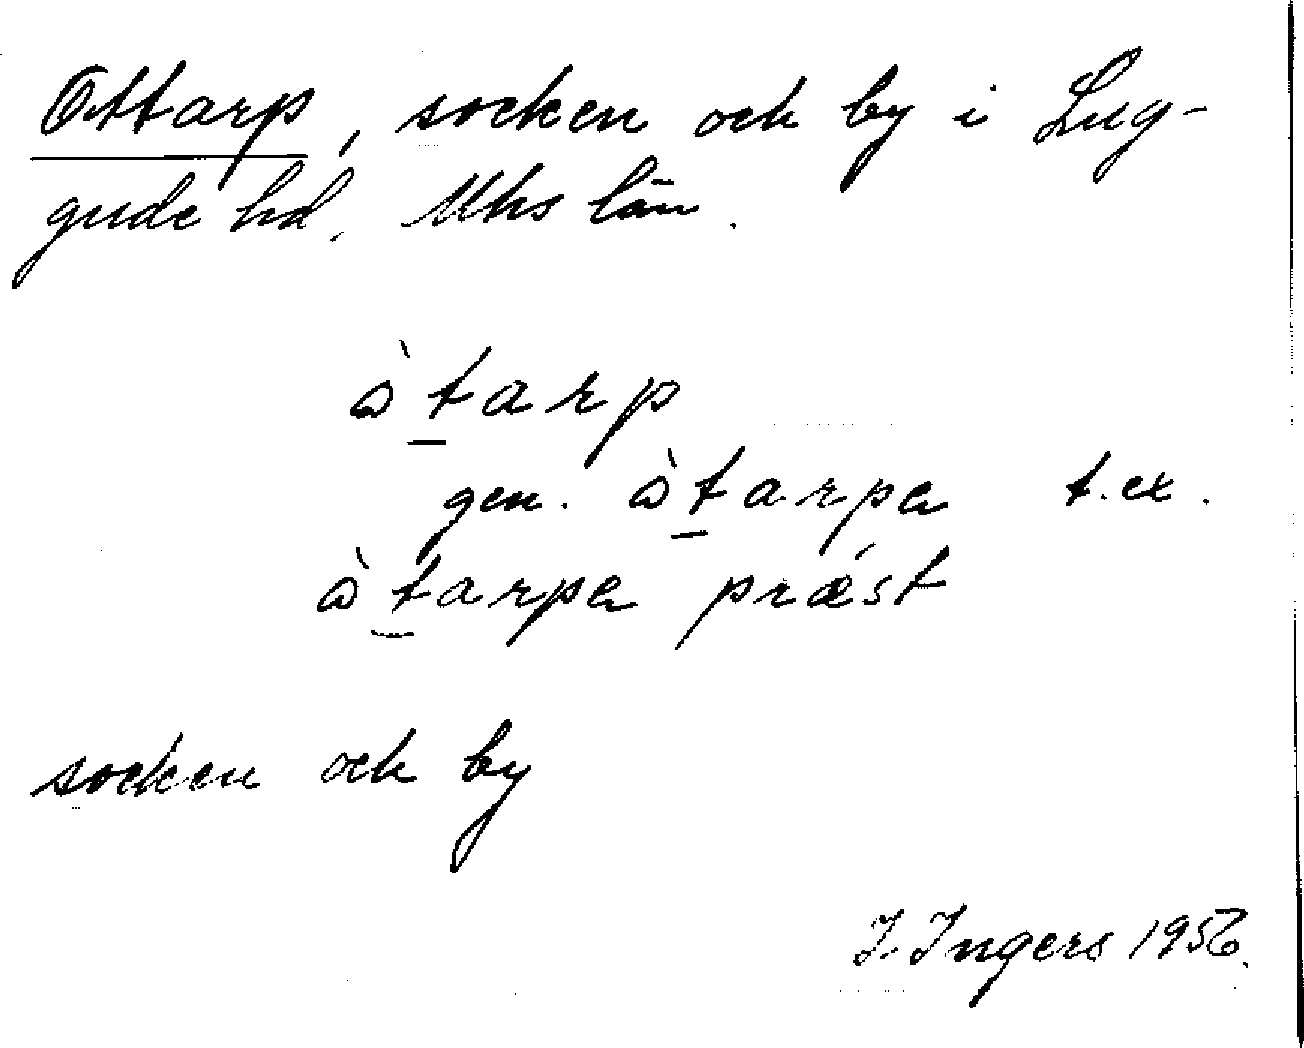 Ottarp, socken och by i Lug-
gude hd, Mhs län.
ὼt̲arp
gen. ὼt̲arpa t.ex.
ὼt̲arpa prǽst
socken och by
I. Ingers 1956.